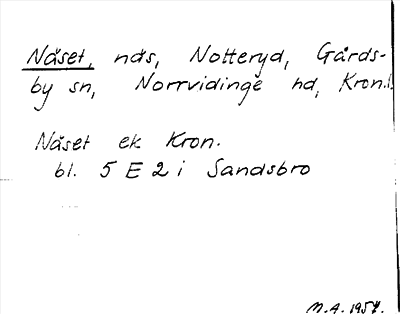 Näset, näs, Notteryd, Gårds-
by sn, Norrvidinge hd, Kron.l.
Näset ek Kron.
bl. 5 E 2 i Sandsbro
M.A. 1957.